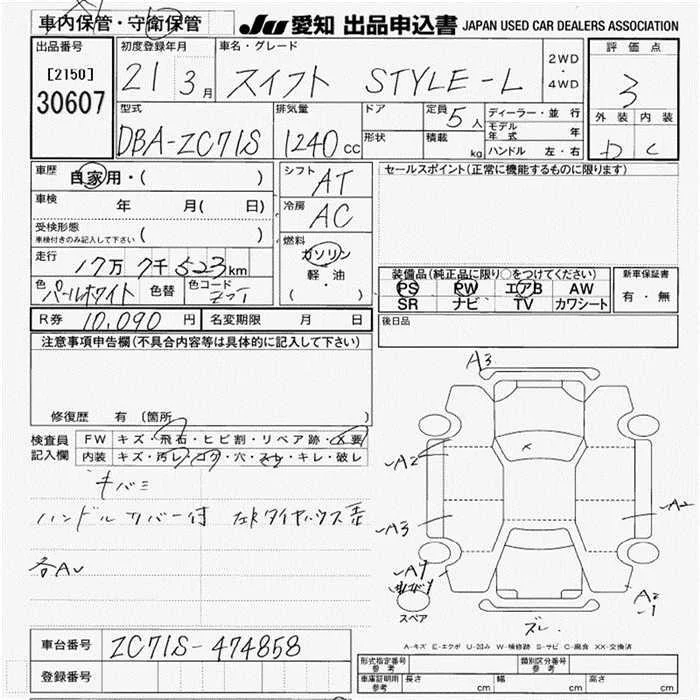 車内保管・守衛保管 JU 愛知 出品申込書 JAPAN USED CAR DEALERS ASSOCIATION
出品番号 [2150] 30607
初度登録年月 21 3月
車名・グレード スイフト STYLE-L
2WD・4WD
評価点 3
外装 内装 C
型式 DBA-ZC71S
排気量 1240cc
ドア 形状
定員 5人
積載 kg
ディーラー・並行
モデル年式 年
ハンドル 左・右
車歴 自家用・( )
車検 年 月( 日)
受検形態
車検付きのみ記入して下さい ( )
走行 17万7千523km
色 パールホワイト 色替 色コード
シフト AT
冷房 AC
燃料 ガソリン 軽・油 ・( )
セールスポイント(正常に機能するものに限ります)
装備品(純正品に限り○をつけてください)
PS PW エアB AW
SR ナビ TV カワシート
新車保証書 有・無
R券 10,090円 名変期限 月 日
後日品
注意事項申告欄(不具合内容等は具体的に記入して下さい)
修復歴 有(箇所 )
検査員記入欄
FW キズ・飛石・ヒビ割・リペア跡・X要
内装 キズ・汚レ・コゲ・穴・スレ・キレ・破レ
キバミ
ハンドルカバー付
各A
A3
A2
A3
A2
A2
-1
スペア
ズレ
A-キズ E-エクボ U-凹み W-補修跡 S-サビ C-腐食 XX-交換済
車台番号 ZC71S-474858
登録番号
形式指定番号 参考 類別区分番号 参考
車庫証明用 参考 長さ cm 幅 cm 高さ cm